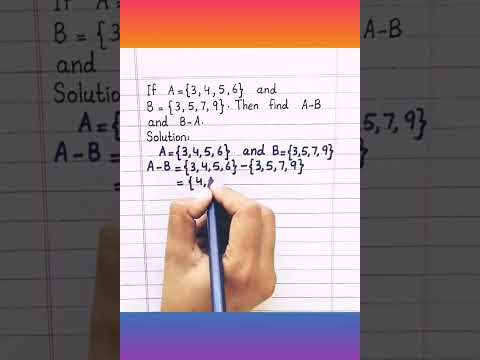 If A={3,4,5,6} and
B={3,5,7,9}. Then find A-B
and B-A.
Solution:
A={3,4,5,6} and B={3,5,7,9}
A-B={3,4,5,6}-{3,5,7,9}
={4,